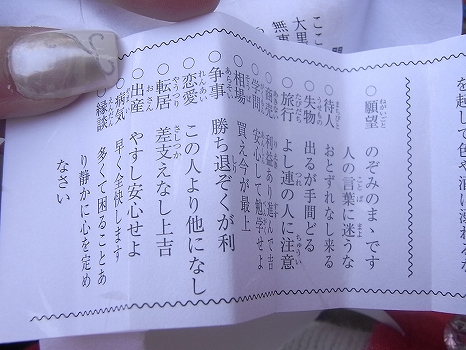 を起して色々に溺れな
○願望 のぞみのまゝです
人の言葉に迷うな
○待人 おとずれなし来る
○失物 出るが手間どる
○旅行 よし連の人に注意
○商売 利益あり進んで吉
○学問 安心して勉学せよ
○相場 買え今が最上
○争事 勝ち退ぞくが利
○恋愛 この人より他になし
○転居 差支えなし上吉
○出産 やすし安心せよ
○病気 早く全快します
○縁談 多くて困ることあ
り静かに心を定め
なさい
ここ
大里
無事